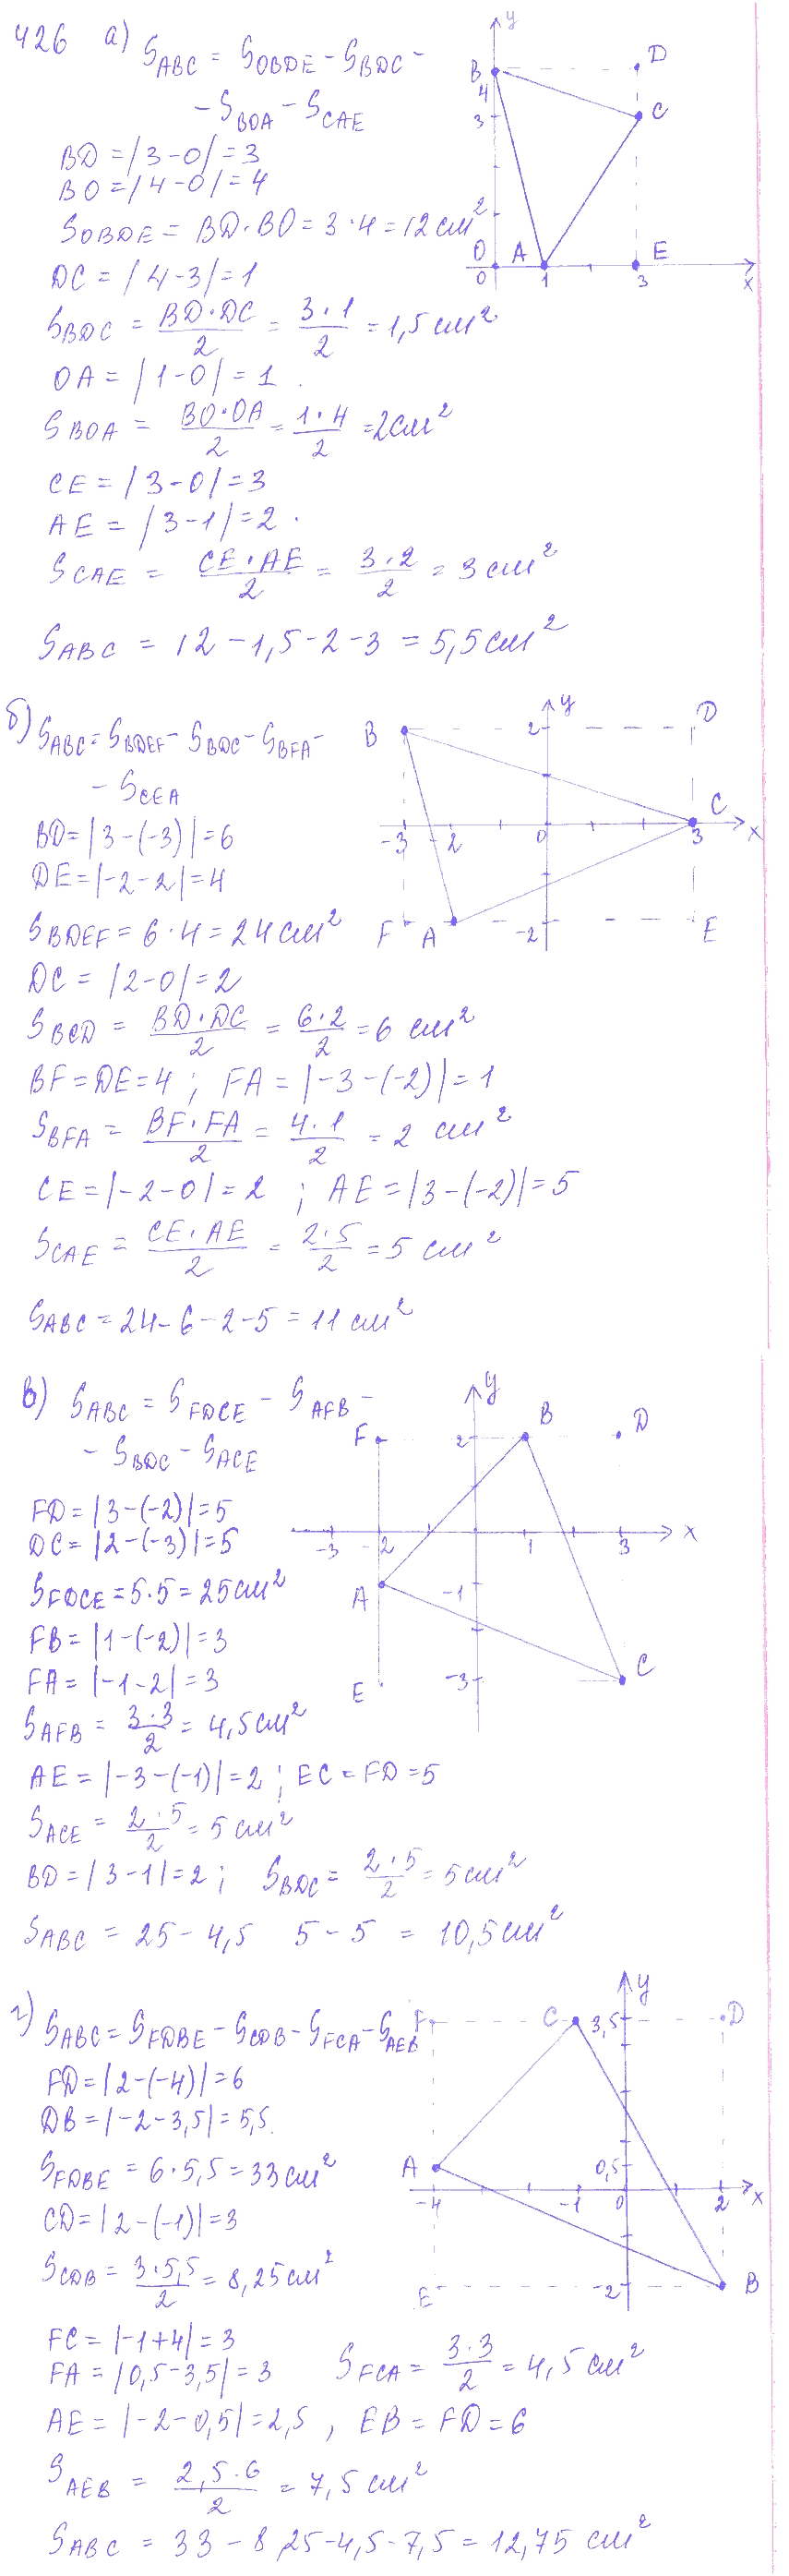 426 а) S_ABC = S_OBDE - S_BDC -
- S_BOA - S_CAE
BD = |3-0| = 3
BO = |4-0| = 4
S_OBDE = BD·BO = 3·4 = 12 см²
DC = |4-3| = 1
S_BDC = BD·DC/2 = 3·1/2 = 1,5 см²
OA = |1-0| = 1
S_BOA = BO·OA/2 = 1·4/2 = 2 см²
CE = |3-0| = 3
AE = |3-1| = 2
S_CAE = CE·AE/2 = 3·2/2 = 3 см²
S_ABC = 12 - 1,5 - 2 - 3 = 5,5 см²
y
B D
4
3 C
O A E
0 1 3 x
б) S_ABC = S_BDEF - S_BDC - S_BFA -
- S_CEA
BD = |3-(-3)| = 6
DE = |-2-2| = 4
S_BDEF = 6·4 = 24 см²
DC = |2-0| = 2
S_BCD = BD·DC/2 = 6·2/2 = 6 см²
BF = DE = 4 ; FA = |-3-(-2)| = 1
S_BFA = BF·FA/2 = 4·1/2 = 2 см²
CE = |-2-0| = 2 ; AE = |3-(-2)| = 5
S_CAE = CE·AE/2 = 2·5/2 = 5 см²
S_ABC = 24 - 6 - 2 - 5 = 11 см²
y D
B 2
C
-3 -2 0 3 x
F A -2 E
в) S_ABC = S_FDCE - S_AFB -
- S_BDC - S_ACE
FD = |3-(-2)| = 5
DC = |2-(-3)| = 5
S_FDCE = 5·5 = 25 см²
FB = |1-(-2)| = 3
FA = |-1-2| = 3
S_AFB = 3·3/2 = 4,5 см²
AE = |-3-(-1)| = 2 ; EC = FD = 5
S_ACE = 2·5/2 = 5 см²
BD = |3-1| = 2 ; S_BDC = 2·5/2 = 5 см²
S_ABC = 25 - 4,5 5 - 5 = 10,5 см²
y
F 2 B D
-3 -2 1 3 x
A -1
E -3 C
г) S_ABC = S_FDBE - S_CDB - S_FCA - S_AEB
FD = |2-(-4)| = 6
DB = |-2-3,5| = 5,5
S_FDBE = 6·5,5 = 33 см²
CD = |2-(-1)| = 3
S_CDB = 3·5,5/2 = 8,25 см²
FC = |-1+4| = 3
FA = |0,5-3,5| = 3 S_FCA = 3·3/2 = 4,5 см²
AE = |-2-0,5| = 2,5 , EB = FD = 6
S_AEB = 2,5·6/2 = 7,5 см²
S_ABC = 33 - 8,25 - 4,5 - 7,5 = 12,75 см²
y
F C 3,5 D
A 0,5
-4 -1 0 2 x
E -2 B